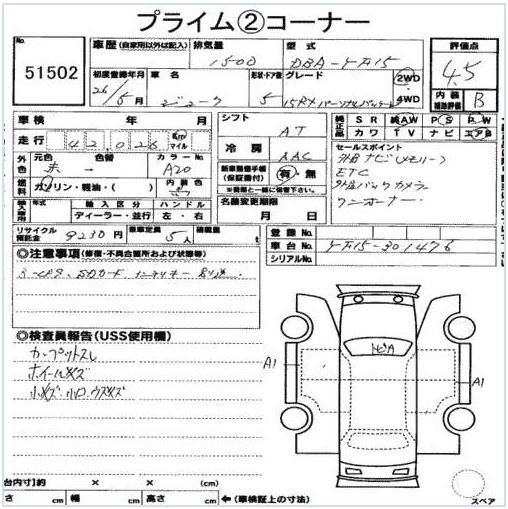 プライム②コーナー
No.
51502
車歴 (自家用以外は記入) 排気量 1500 型式 DBA-YF15
初度登録年月 26/5月 車名 ジューク 形状・ドア数 5 グレード 15RX パーソナル 2WD 4WD
評価点 4.5
内装補助評価 B
車検 年 月
走行 42,026 Km マイル
シフト AT
冷房 AAC
純正品 SR 純AW PS PW
カワ TV ナビ エアB
外色 元色 赤 色替 - カラーNo. A20
燃料 ガソリン・軽油・( ) 内装色
新車整備手帳(保証書付) 有・無
※書類と一緒に送付下さい。
セールスポイント
外B ナビ(メモリー)
ETC
外品 バックカメラ
ワンオーナー
輸入車用 年式 輸入区分 ハンドル
ディーラー・並行 左・右
名義変更期限 月 日
リサイクル預託金 9230円 乗車定員 5人 積載量
登録No.
車台No. YF15-301476
シリアルNo.
◎注意事項(修復・不具合箇所および状態等)
SDカード
◎検査員報告(USS使用欄)
カープットスレ
ホイールキズ
小キズ 小凹 ウスキズ
トビA
A1
A1
台内寸)約 × × (cm)
さ cm 幅 cm 高さ cm ←(車検証上の寸法)
スペア